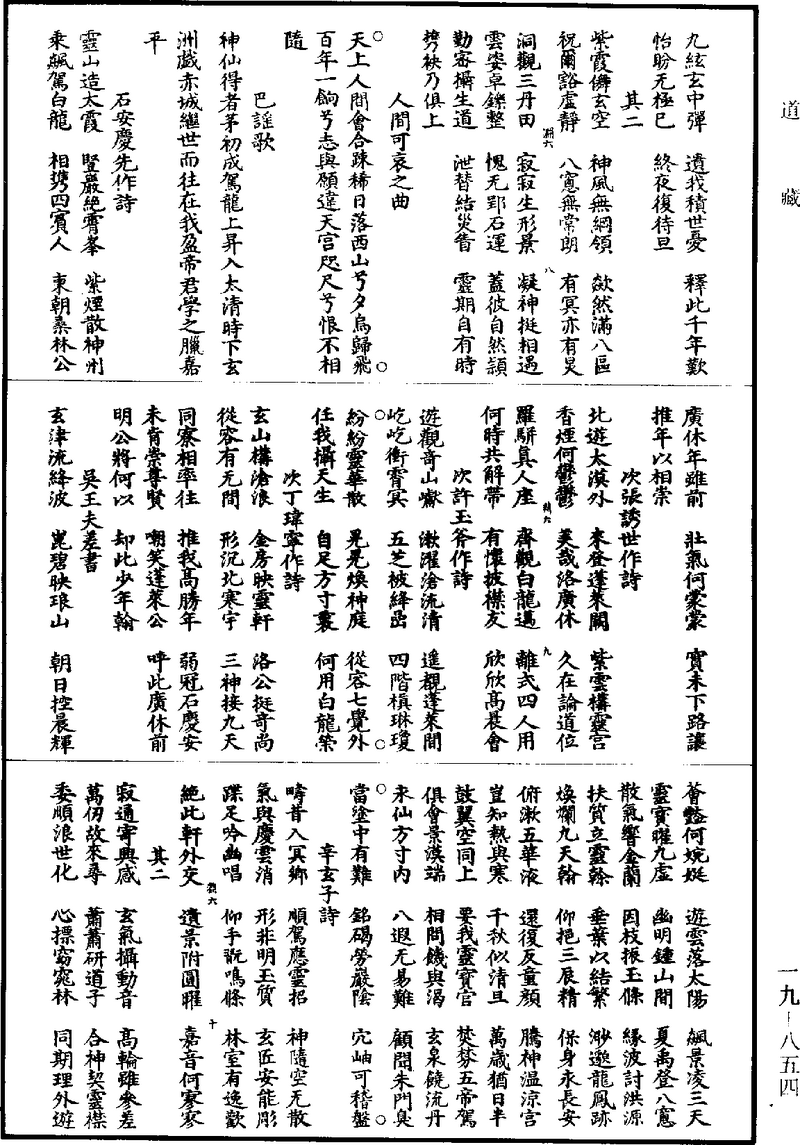 道藏
九絃玄中彈　遺我積世憂　釋此千年歎
怡盼无極已　終夜復待旦
其二
紫霞儛玄空　神風無綱領　欻然滿八區
祝爾豁虛靜　八窻無常朗　有冥亦有炅
洞觀三丹田　寂寂生形景　凝神挺相遇
雲姿卓鑠整　愧无郢石運　蓋彼自然穎
勤審攝生道　泄替結災眚　靈期自有時
攜袂乃俱上
人間可哀之曲
天上人間會合踈稀日落西山兮夕烏歸飛
百年一餉兮志與願違天宮咫尺兮恨不相
隨
巴謠歌
神仙得者茅初成駕龍上昇入太清時下玄
洲戲赤城繼世而往在我盈帝君學之臘嘉
平
石安慶先作詩
靈山造太霞　豎巖絶霄峯　紫煙散神州
乘飆駕白龍　相攜四賓人　東朝桑林公
廣休年雖前　壯氣何蒙蒙　實未下路讓
推年以相崇
次張誘世作詩
北遊太漠外　來登蓬萊闕　紫雲構靈宮
香煙何鬱鬱　美哉洛廣休　久在論道位
羅駢真人座　齊觀白龍邁　離式四人用
何時共解帶　有懷披襟友　欣欣高晨會
次許玉斧作詩
遊觀奇山嶽　漱濯滄流清　遥觀蓬萊間
屹屹衝霄冥　五芝被絳嵒　四階植琳瓊
紛紛靈華散　晃晃煥神庭　從容七覺外
任我攝天生　自足方寸裏　何用白龍榮
次丁瑋寧作詩
玄山構滄浪　金房映靈軒　洛公挺奇尚
從容有无間　形沉北寒宇　三神接九天
同寮相率往　推我高勝年　弱冠石慶安
未肯崇尊賢　嘲笑蓬萊公　呼此廣休前
明公將何以　却此少年翰
吳王夫差書
玄津流絳波　崑碧映琅山　朝日控晨輝
薈豔何婉娗　遊雲落太陽　飆景凌三天
靈寶曜九虛　幽明鍾山間　夏禹登八窻
散氣響金蘭　因枝振玉條　緣波討洪源
扶質立靈榦　垂葉以結繁　渺邈龍鳳跡
煥爛九天翰　仰挹三晨精　保身永長安
俯漱五華液　還復反童顏　騰神溫涼宮
豈知熱與寒　千秋似清旦　萬歲猶日半
鼓翼空同上　要我靈寶官　焚棼五帝駕
俱會景漠端　相問饑與渴　玄泉饒流丹
來仙方寸內　八遐无易難　顧問朱門臭
當塗中有難　銘碣勞巖陰　穴岫可稽盤
辛玄子詩
疇昔入冥鄉　順駕應靈招　神隨空无散
氣與慶雲消　形非明玉質　玄匠安能彫
蹀足吟幽唱　仰手翫鳴條　林室有逸歡
絶此軒外交　遺景附圓曜　嘉音何寥寥
其二
寂通寄興感　玄氣攝動音　高輪雖參差
萬仞故來尋　蕭蕭研道子　合神契靈襟
委順浪世化　心摽窈窕林　同期理外遊
一九－八五四